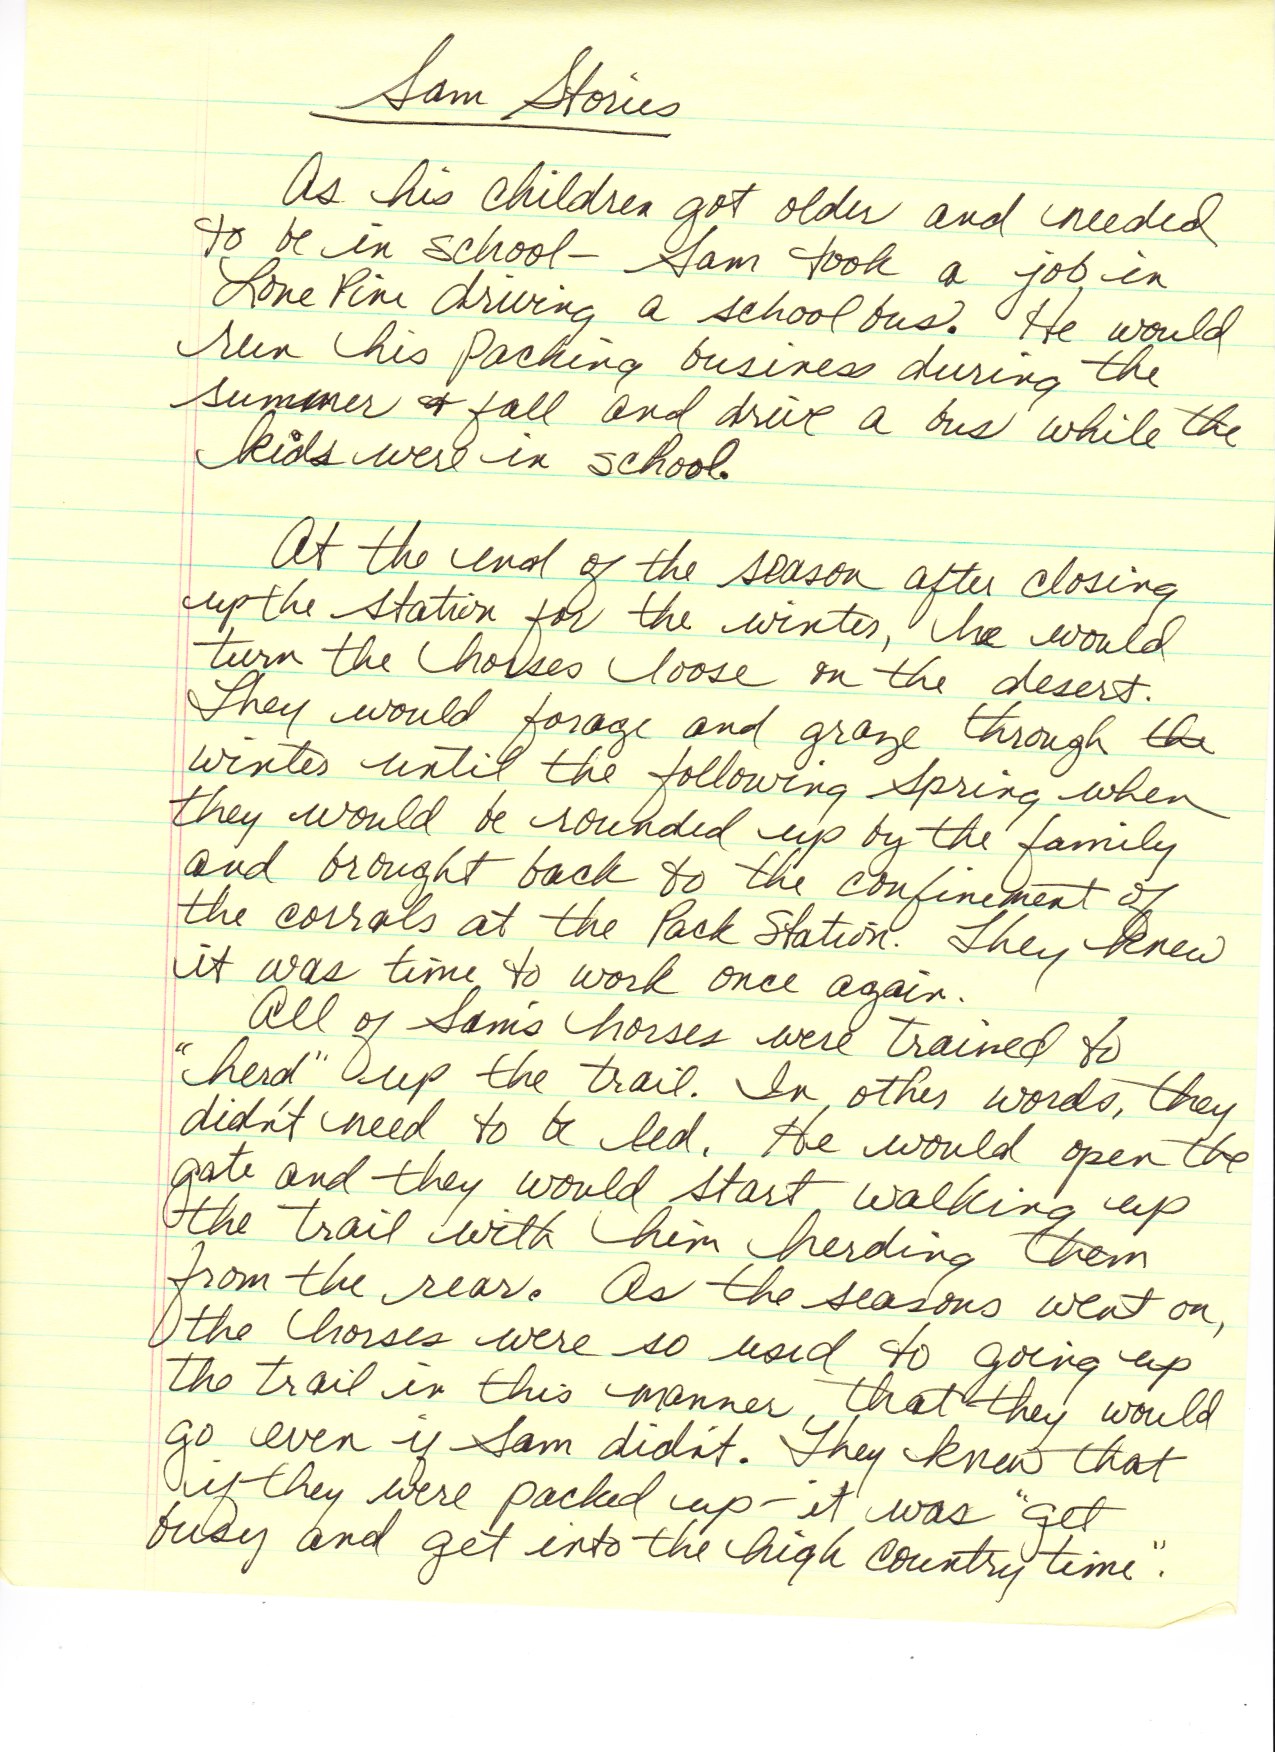 Sam Stories
As his children got older and needed
to be in school - Sam took a job in
Lone Pine driving a school bus. He would
run his packing business during the
summer & fall and drive a bus while the
kids were in school.
At the end of the season after closing
up the station for the winter, he would
turn the horses loose on the desert.
They would forage and graze through the
winter until the following spring when
they would be rounded up by the family
and brought back to the confinement of
the corrals at the Pack Station. They knew
it was time to work once again.
All of Sam's horses were trained to
"herd" up the trail. In other words, they
didn't need to be led. He would open the
gate and they would start walking up
the trail with him herding them
from the rear. As the seasons went on,
the horses were so used to going up
the trail in this manner, that they would
go even if Sam didn't. They knew that
if they were packed up - it was "get
busy and get into the high country time".